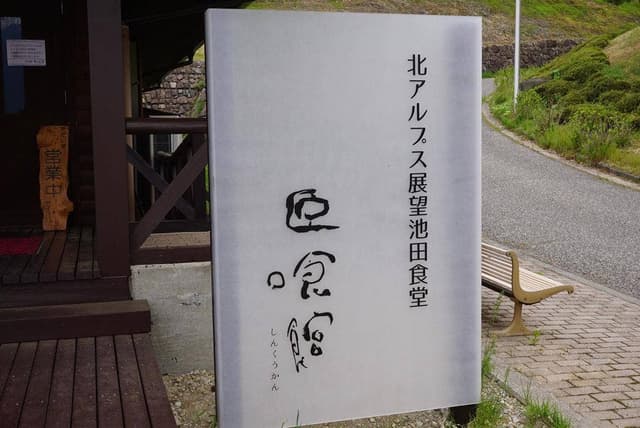 北アルプス展望池田食堂
臣喰館
しんくうかん
営業中